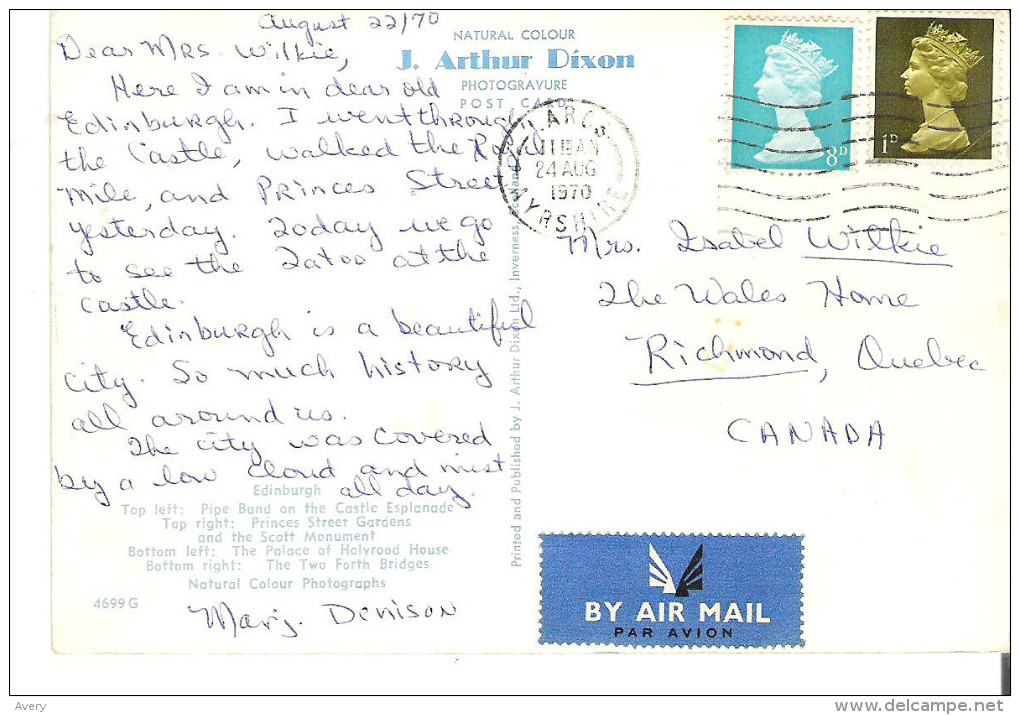 August 22/70
Dear Mrs. Wilkie,
Here I am in dear old
Edinburgh. I went through
the Castle, walked the Royal
Mile, and Princes Street
yesterday. Today we go
to see the Tatoo at the
castle.
Edinburgh is a beautiful
city. So much history
all around us.
The city was covered
by a low cloud and mist
all day.
Marj. Denison
NATURAL COLOUR
J. Arthur Dixon
PHOTOGRAVURE
POST CARD
Edinburgh
Top left: Pipe Band on the Castle Esplanade
Top right: Princes Street Gardens
and the Scott Monument
Bottom left: The Palace of Holyrood House
Bottom right: The Two Forth Bridges
Natural Colour Photographs
4699 G
Printed and Published by J. Arthur Dixon Ltd., Inverness, Scotland
LARGS
24 AUG
1970
AYRSHIRE
8D
1D
Mrs. Isabel Wilkie
The Wales Home
Richmond, Quebec
CANADA
BY AIR MAIL
PAR AVION
Avery
delcampe.net